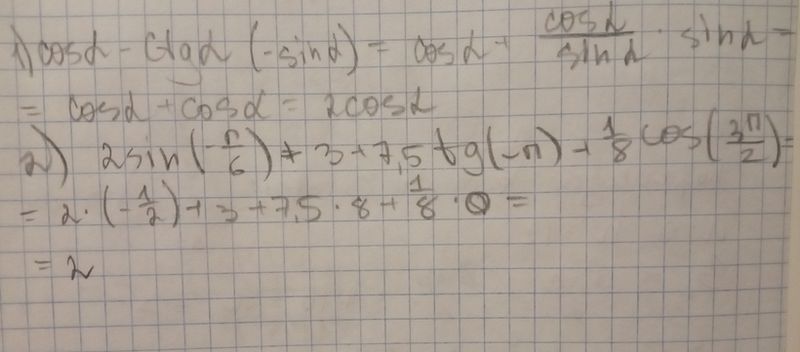 1) cosα - Ctgα (-sinα) = cosα + cosα/sinα · sinα =
= cosα + cosα = 2cosα
2) 2sin(-π/6) + 3 + 7,5 tg(-π) + 1/8 cos(3π/2) =
= 2·(-1/2) + 3 + 7,5 · 8 + 1/8 · 0 =
= 2